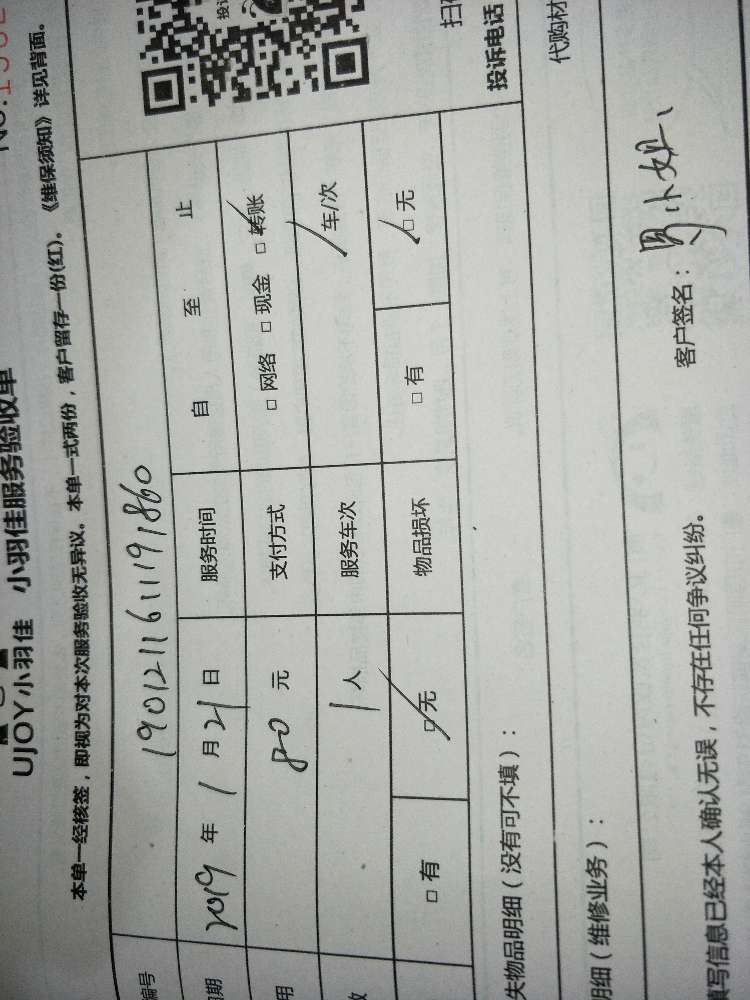 UJOY小羽佳 小羽佳服务验收单
本单一经核签，即视为对本次服务验收无异议。本单一式两份，客户留存一份(红)。《维保须知》详见背面。
编号 1901211611191860
2019年1月21日 服务时间 自 至 止
用 80元 支付方式 □网络 □现金 □转账
1人 服务车次 /车/次
□有 □无 物品损坏 □有 □无
失物品明细（没有可不填）： 投诉电话
明细（维修业务）： 代购材
客户签名：周小姐
填写信息已经本人确认无误，不存在任何争议纠纷。